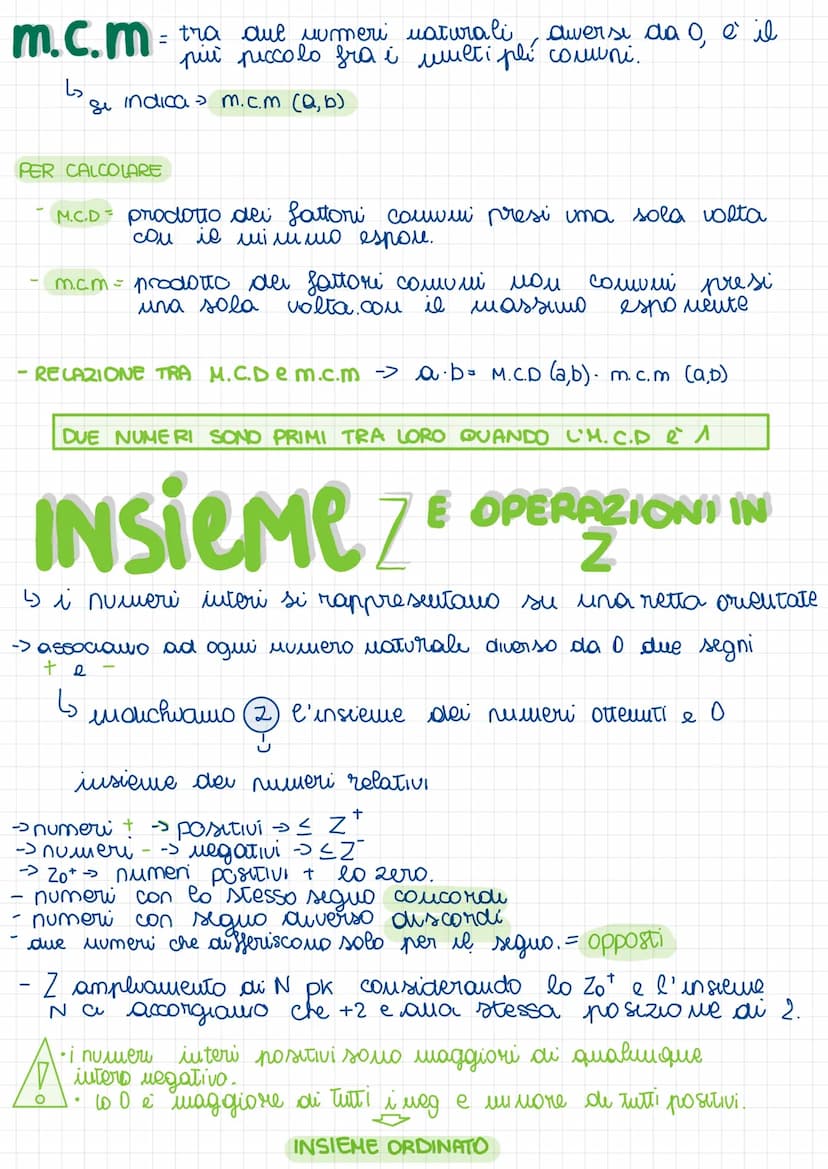 m.c.m = tra due numeri naturali, diversi da 0, è il
più piccolo fra i multipli comuni.
↳ si indica → m.c.m (a,b)
PER CALCOLARE
- M.C.D = prodotto dei fattori comuni presi una sola volta
con il minimo espon.
- m.c.m = prodotto dei fattori comuni non comuni presi
una sola volta con il massimo esponente
- RELAZIONE TRA M.C.D e m.c.m -> a·b = M.C.D (a,b) · m.c.m (a,b)
DUE NUMERI SONO PRIMI TRA LORO QUANDO L'M.C.D È 1
INSIEME Z E OPERAZIONI IN
Z
↳ i numeri interi si rappresentano su una retta orientate
-> associamo ad ogni numero naturale diverso da 0 due segni
+ e -
↳ indichiamo Z l'insieme dei numeri ottenuti e 0
insieme dei numeri relativi
-> numeri + -> positivi -> ≤ Z⁺
-> numeri - -> negativi -> ≤ Z⁻
-> Z0⁺ -> numeri positivi + lo zero.
- numeri con lo stesso segno concordi
- numeri con segno diverso discordi
- due numeri che differiscono solo per il segno. = opposti
- Z ampliamento di N pk considerando lo Z0⁺ e l'insieme
N ci accorgiamo che +2 e alla stessa posizione di 2.
! · i numeri interi positivi sono maggiori di qualunque
intero negativo.
· lo 0 è maggiore di tutti i neg e minore di tutti positivi.
INSIEME ORDINATO